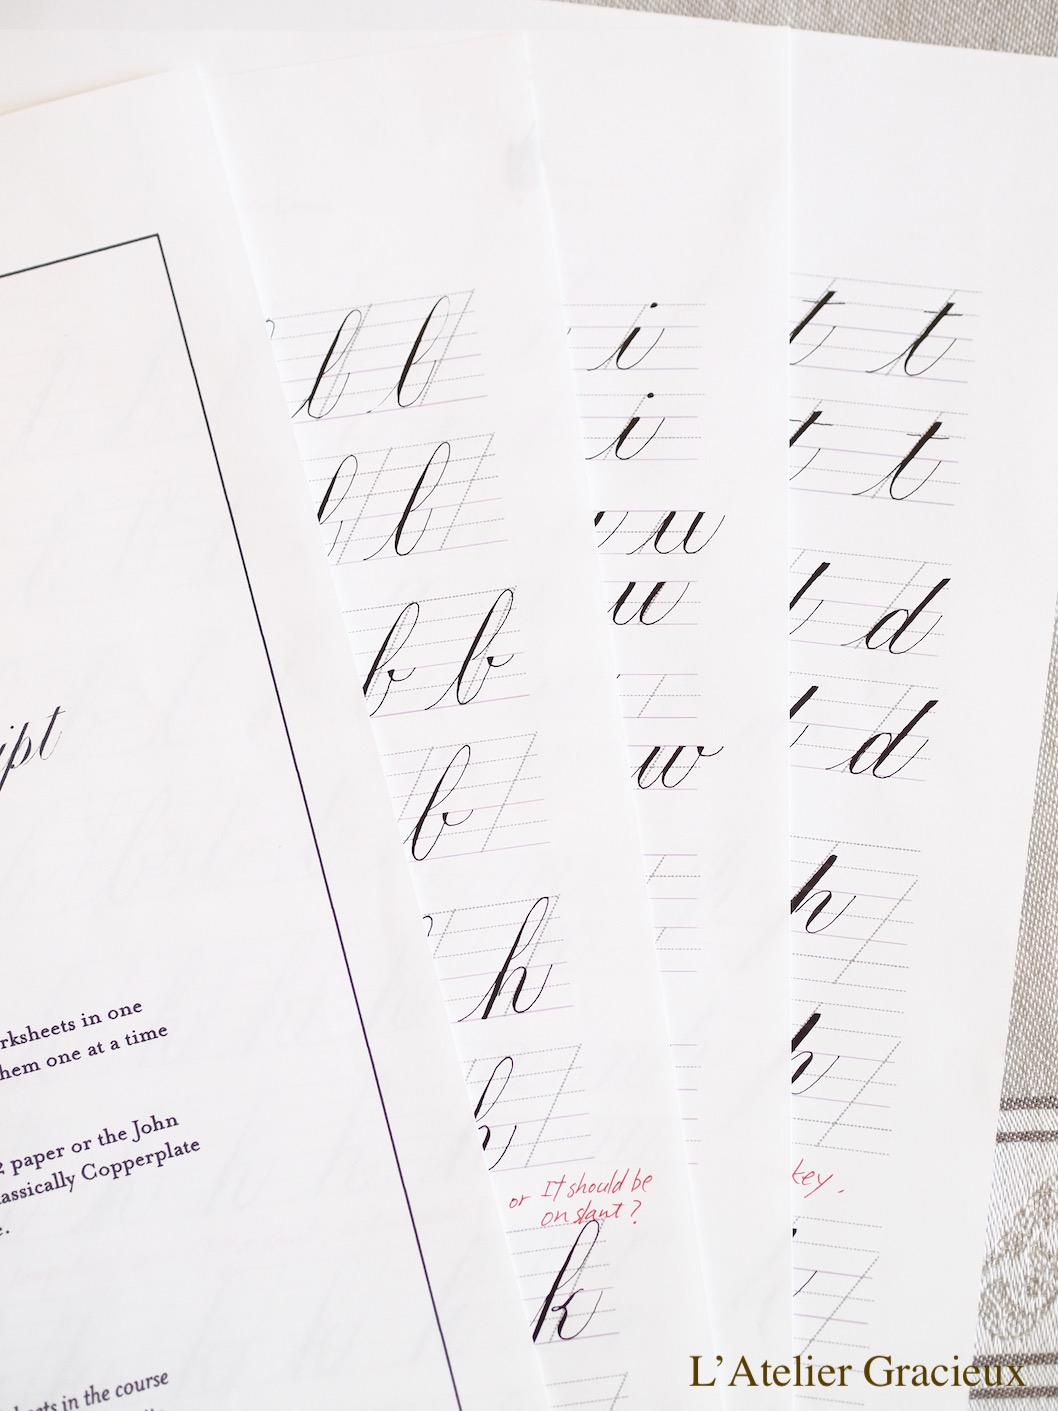 ipt
rksheets in one
hem one at a time
2 paper or the John
lassically Copperplate
e.
ets in the course
l l
l
b b
b
h
or It should be
on slant?
k
i
i
u
u
w
t t
t t
d
d
h
h
key.
L'Atelier Gracieux